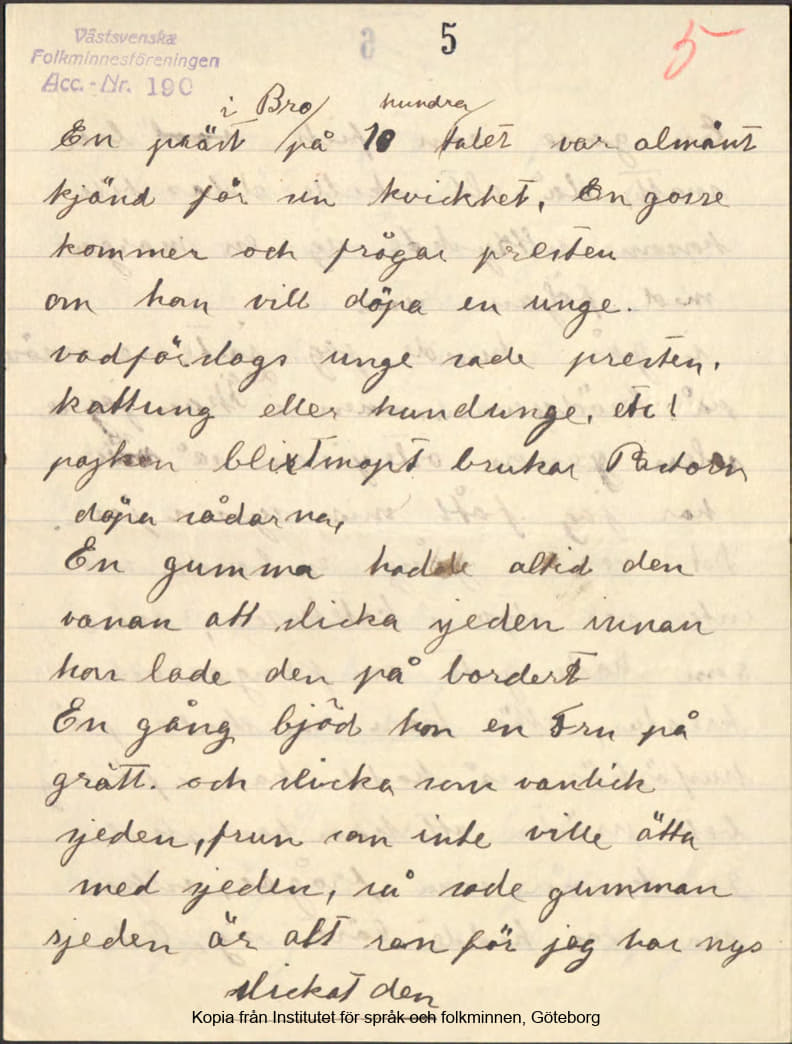 Västsvenska
Folkminnesföreningen
Acc.-Nr. 190
5
5
i Bro hundra
En präst på 18 talet var almänt
kjänd för sin kvickhet, En gosse
kommer och frågar presten
om han vill döpa en unge.
vadförslags unge sade presten,
kattung eller hundunge, etc!
pojken blixtsnapt brukar Pastorn
döpa sådarna,
En gumma hadde altid den
vanan att slicka sjeden innan
hon lade den på bordert
En gång bjöd hon en Fru på
grätt. och slicka som vanlick
sjeden, frun som inte ville ätta
med sjeden, så sade gumman
sjeden är alt ren för jag har nys
slickat den
Kopia från Institutet för språk och folkminnen, Göteborg